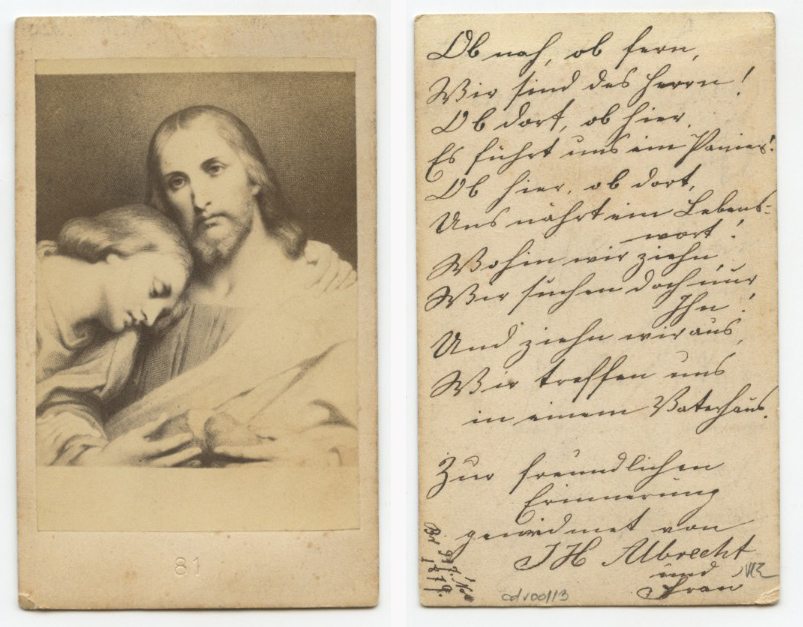 81
Ob nah, ob fern,
Wir sind des Herrn!
Ob dort, ob hier,
Es führt uns ein Panier!
Ob hier, ob dort,
Uns nährt ein Lebens-
wort!
Wohin wir ziehn,
Wir suchen doch nur
Ihn!
Und ziehn wir aus,
Wir treffen uns
in einem Vaterhaus.
Zur freundlichen
Erinnerung
gewidmet von
JH Albrecht
und
Frau
1879.
cdv00113